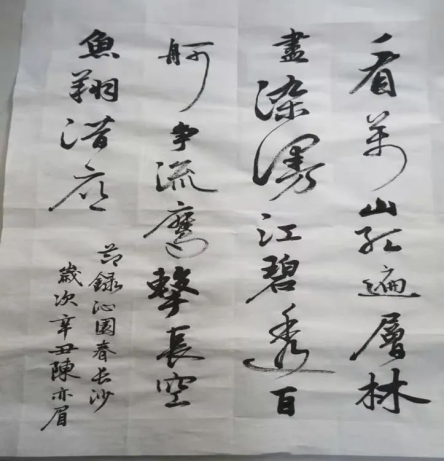 看萬山紅遍層林
盡染漫江碧透百
舸争流鷹擊長空
魚翔底
節録沁園春长沙
歲次辛丑陳亦眉